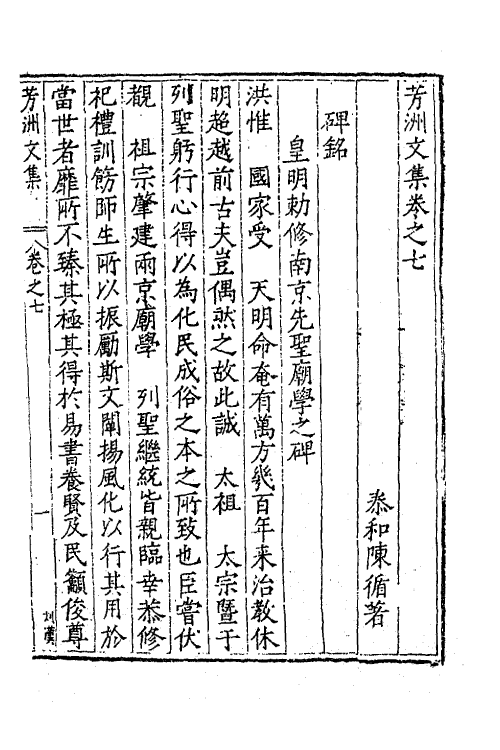 芳洲文集卷之七
泰和陳循著
碑銘
皇明勅修南京先聖廟學之碑
洪惟　國家受　天明命奄有萬方幾百年来治教休
明超越前古夫豈偶然之故此誠　太祖　太宗暨于
列聖躬行心得以為化民成俗之本之所致也臣嘗伏
觀　祖宗肇建兩京廟學　列聖繼統皆親臨幸恭修
祀禮訓飭師生所以振勵斯文闡揚風化以行其用於
當世者靡所不臻其極其得於易書養賢及民籲俊尊
芳洲文集　卷之七　一